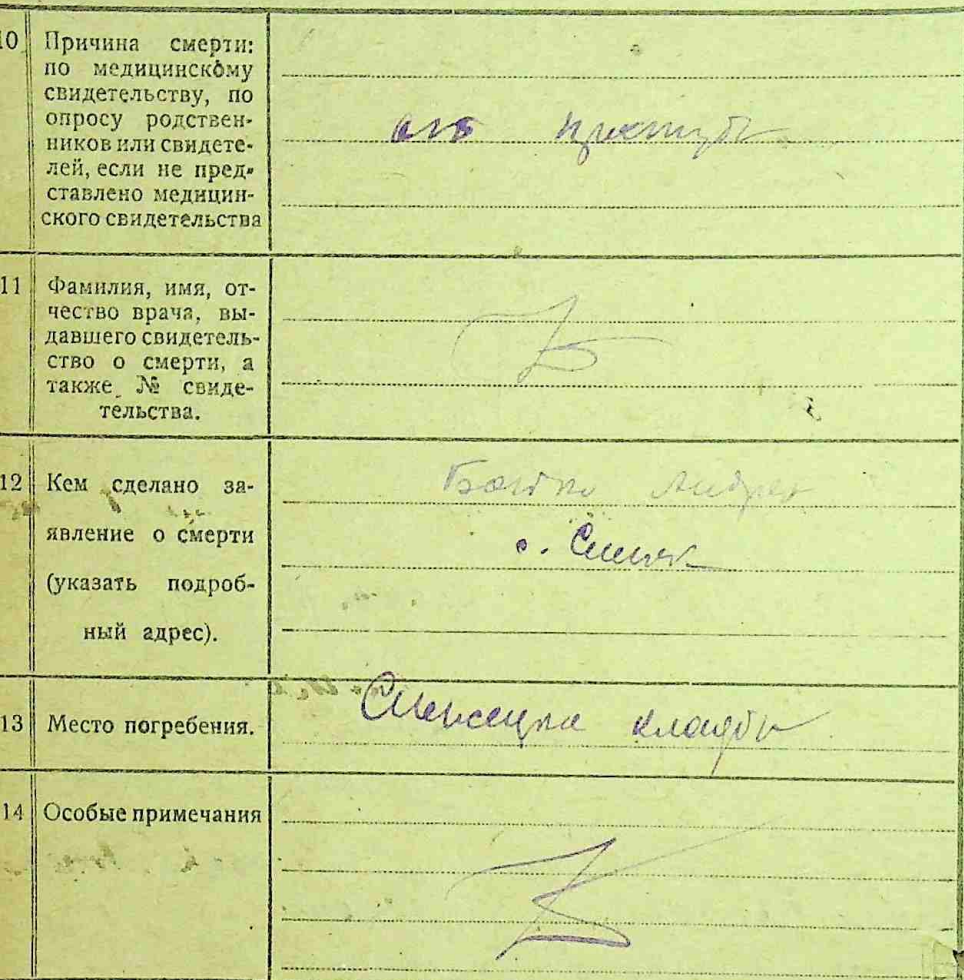 10 Причина смерти:
по медицинскому
свидетельству, по
опросу родствен-
ников или свидете-
лей, если не пред-
ставлено медицин-
ского свидетельства
от простуды
11 Фамилия, имя, от-
чество врача, вы-
давшего свидетель-
ство о смерти, а
также № свиде-
тельства.
12 Кем сделано за-
явление о смерти
(указать подроб-
ный адрес).
Андрей
с.
13 Место погребения.
кладби
14 Особые примечания